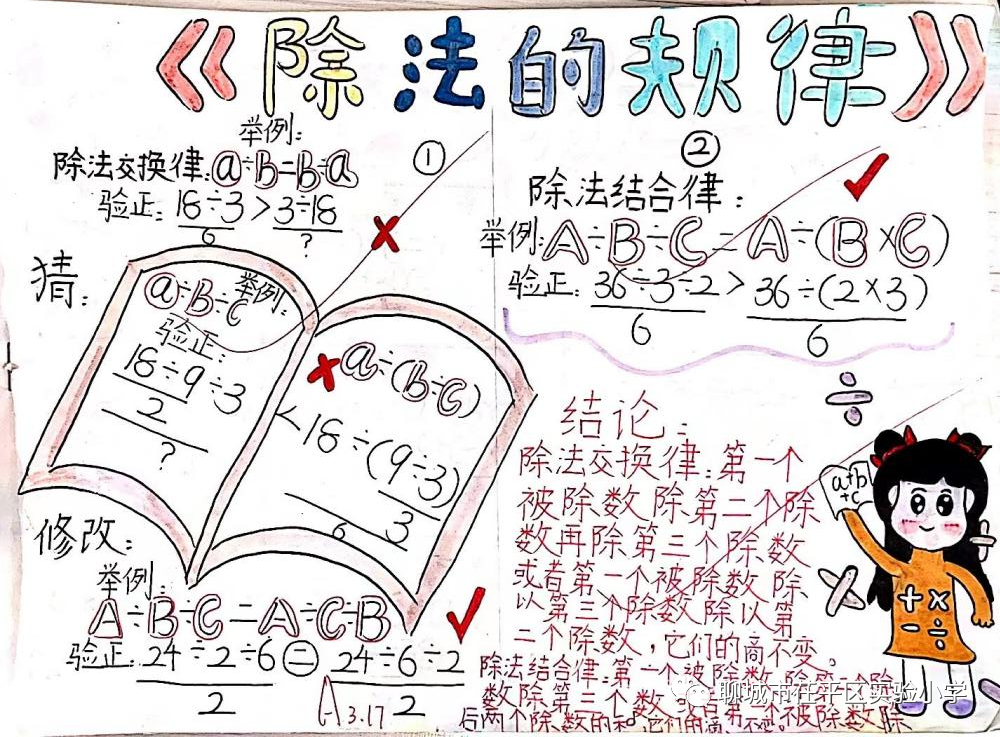 《除法的规律》
举例:
①
除法交换律:a÷B=B÷a
验正:18÷3>3÷18
6
?
猜:
a÷B÷C
举例:
验正:
18÷9÷3
2
?
a÷(B÷C)
<18÷(9÷3)
3
6
修改:
举例:
A÷B÷C=A÷C÷B
验正:24÷2÷6=24÷6÷2
2
2
A 3.17
②
除法结合律:
举例:A÷B÷C=A÷(B×C)
验正:36÷3÷2>36÷(2×3)
6
6
结论:
除法交换律:第一个
被除数除第二个除
数再除第三个除数
或者第一个被除数除
以第三个除数除以第
二个除数,它们的商不变。
除法结合律:第一个被除数除第二个除
数除第三个数或者第一个被除数除
后两个除数的积,它们的商不变。
÷
a+b
+c
+×
-÷
聊城市茌平区实验小学